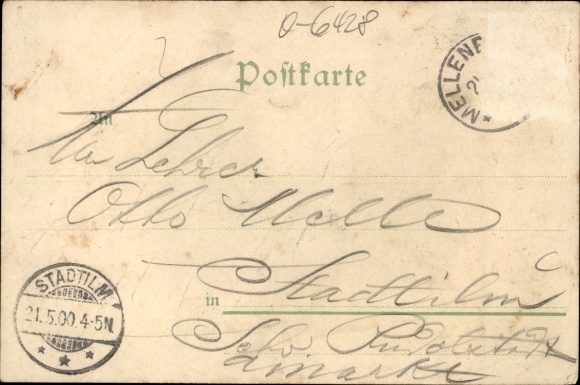 0-6428
Postkarte
MELLENB
21
An
Herrn Lehrer
Otto Molle
in Stadtilm
Schw. Rudolstadt
STADTILM
21.5.00.4-5N.